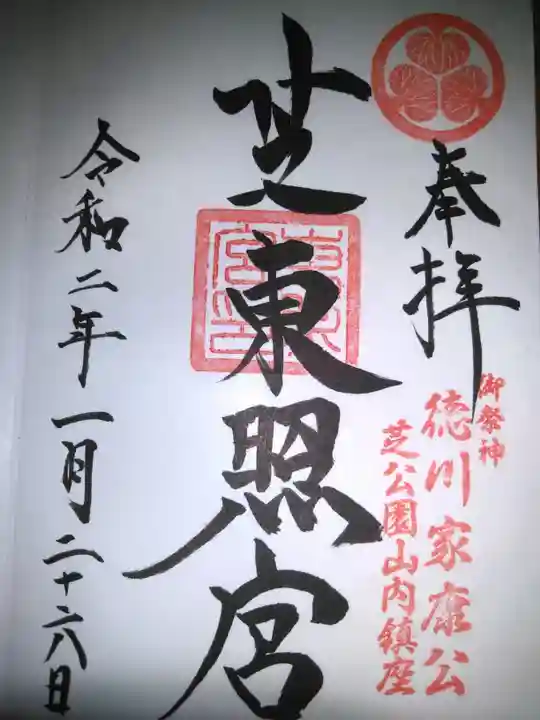 奉拝
御祭神
徳川家康公
芝公園山内鎮座
芝東照宮
令和二年一月二十六日